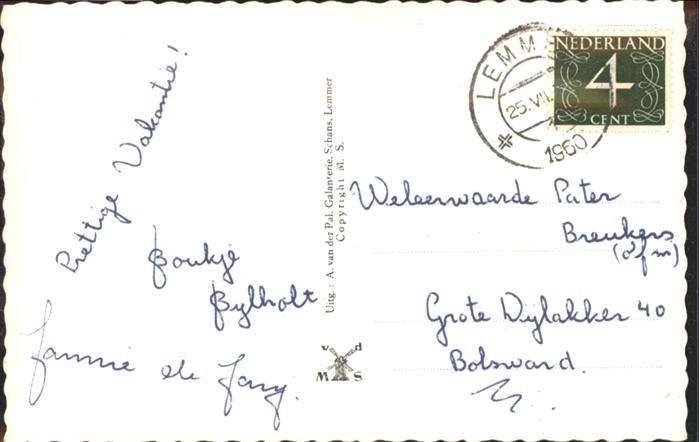 Prettige Vakantie!
Boukje
Bylholt
Jannie de Jong.
Uitg.: A. van der Pal, Galanterie, Schans, Lemmer
Copyright M. S.
v d
M S
LEMM
25.VII.
1960
NEDERLAND
4
CENT
Weleerwaarde Pater
Breukers
(ofm)
Grote Dylakker 40
Bolsward.